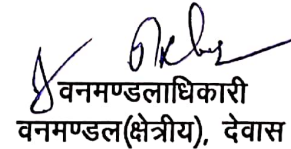 वनमण्डलाधिकारी
वनमण्डल(क्षेत्रीय), देवास